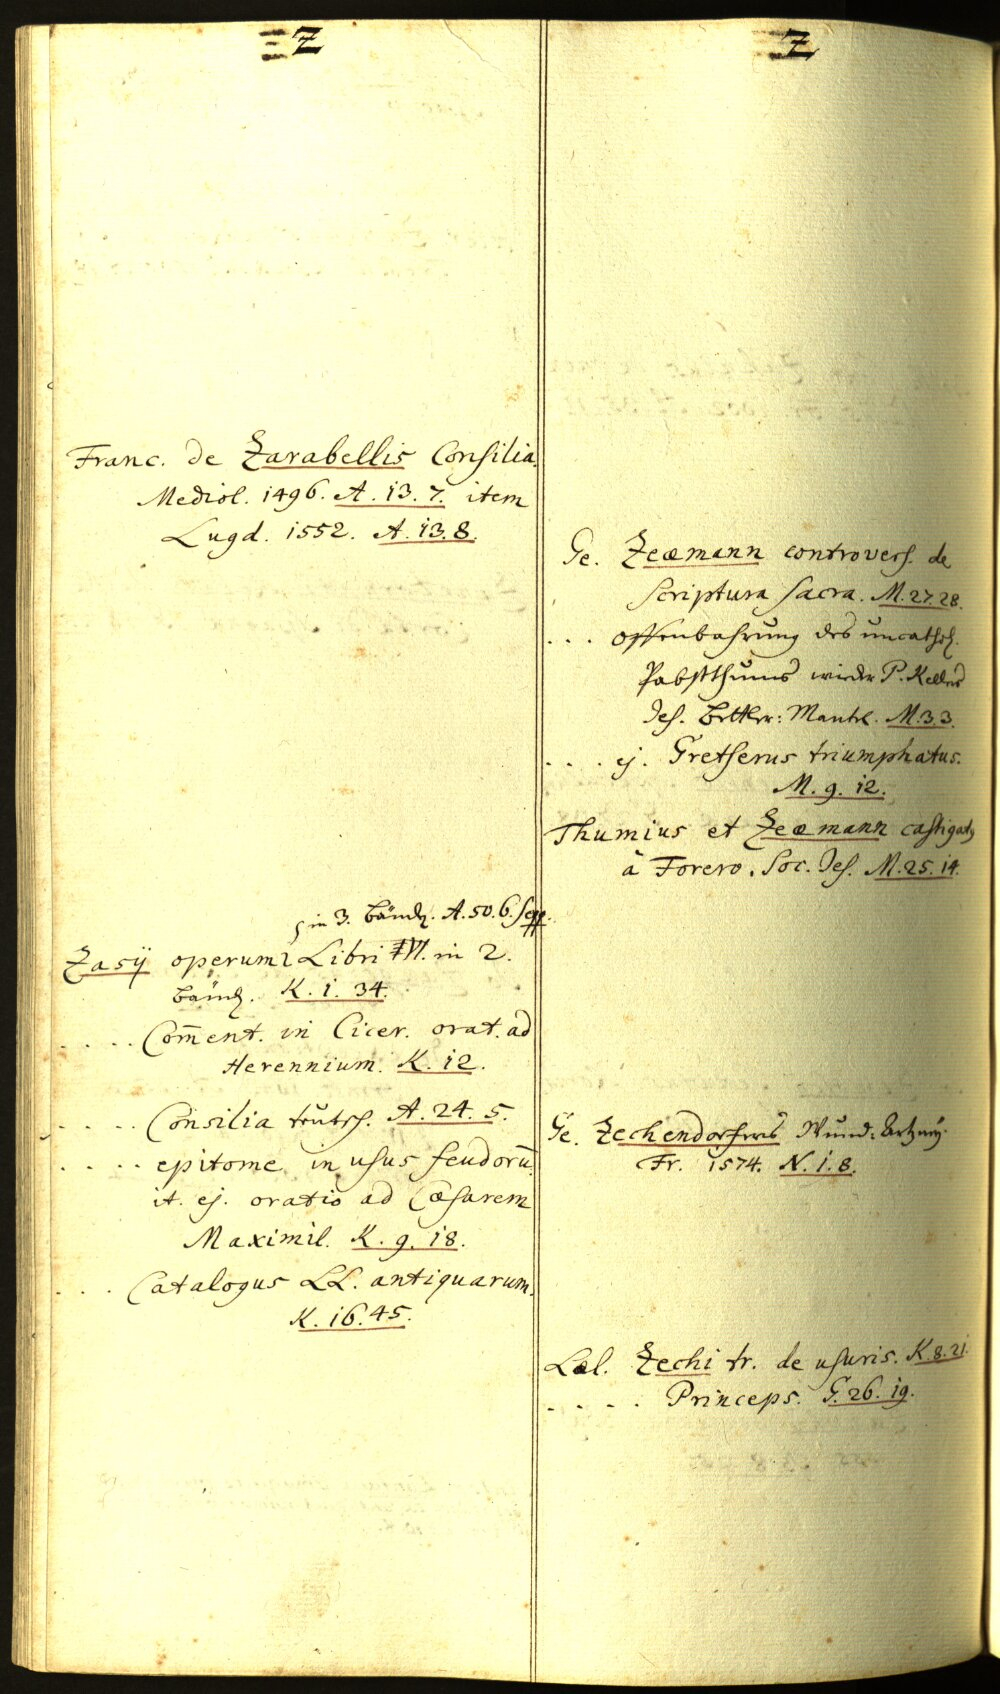 Z
Franc. de Zarabellis Consilia.
Mediol. 1496. A. 13. 7. item
Lugd. 1552. A. 13. 8.
in 3. Bänd. A. 50. 6. seqq.
Zasÿ operum Libri VI. in 2.
Bänd. K. 1. 34.
.... Com̄ent. in Cicer. orat. ad
Herennium. K. 12.
.... Consilia teutsch. A. 24. 5.
.... epitome in usus feudorū.
it. ej. oratio ad Cæsarem
Maximil. K. 9. 18.
... Catalogus LL. antiquarum.
K. 16. 45.
Z
Ge. Zeæmann controvers. de
Scriptura Sacra. M. 27. 28.
... Offenbahrung des uncathol.
Pabstthums wieder P. Kellers
Jes. Bettler: Mantel. M. 3. 3.
... ej. Gretserus triumphatus.
M. 9. 12.
Thumius et Zeæmann castigatq
à Forero. Soc. Jes. M. 25. 14.
Ge. Zechendorfers Wund: Artzney.
Fr. 1574. N. 1. 8.
Læl. Zechi tr. de usuris. K. 8. 21.
.... Princeps. G. 26. 19.